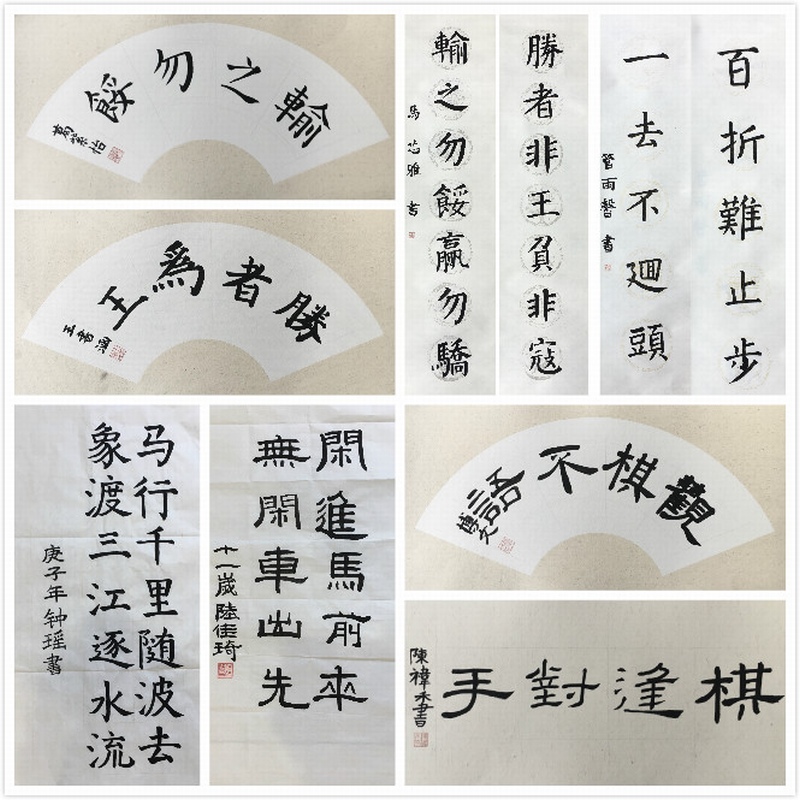 輸之勿餒
葛紫怡
勝者爲王
王書涵
勝者非王負非寇
輸之勿餒贏勿驕
馬芯雅書
百折難止步
一去不迴頭
管雨馨書
马行千里随波去
象渡三江逐水流
庚子年钟瑶書
閑進馬前來
無閑車出先
十一歲陸佳琦
觀棋不語
博文
棋逢對手
陳禕禾書